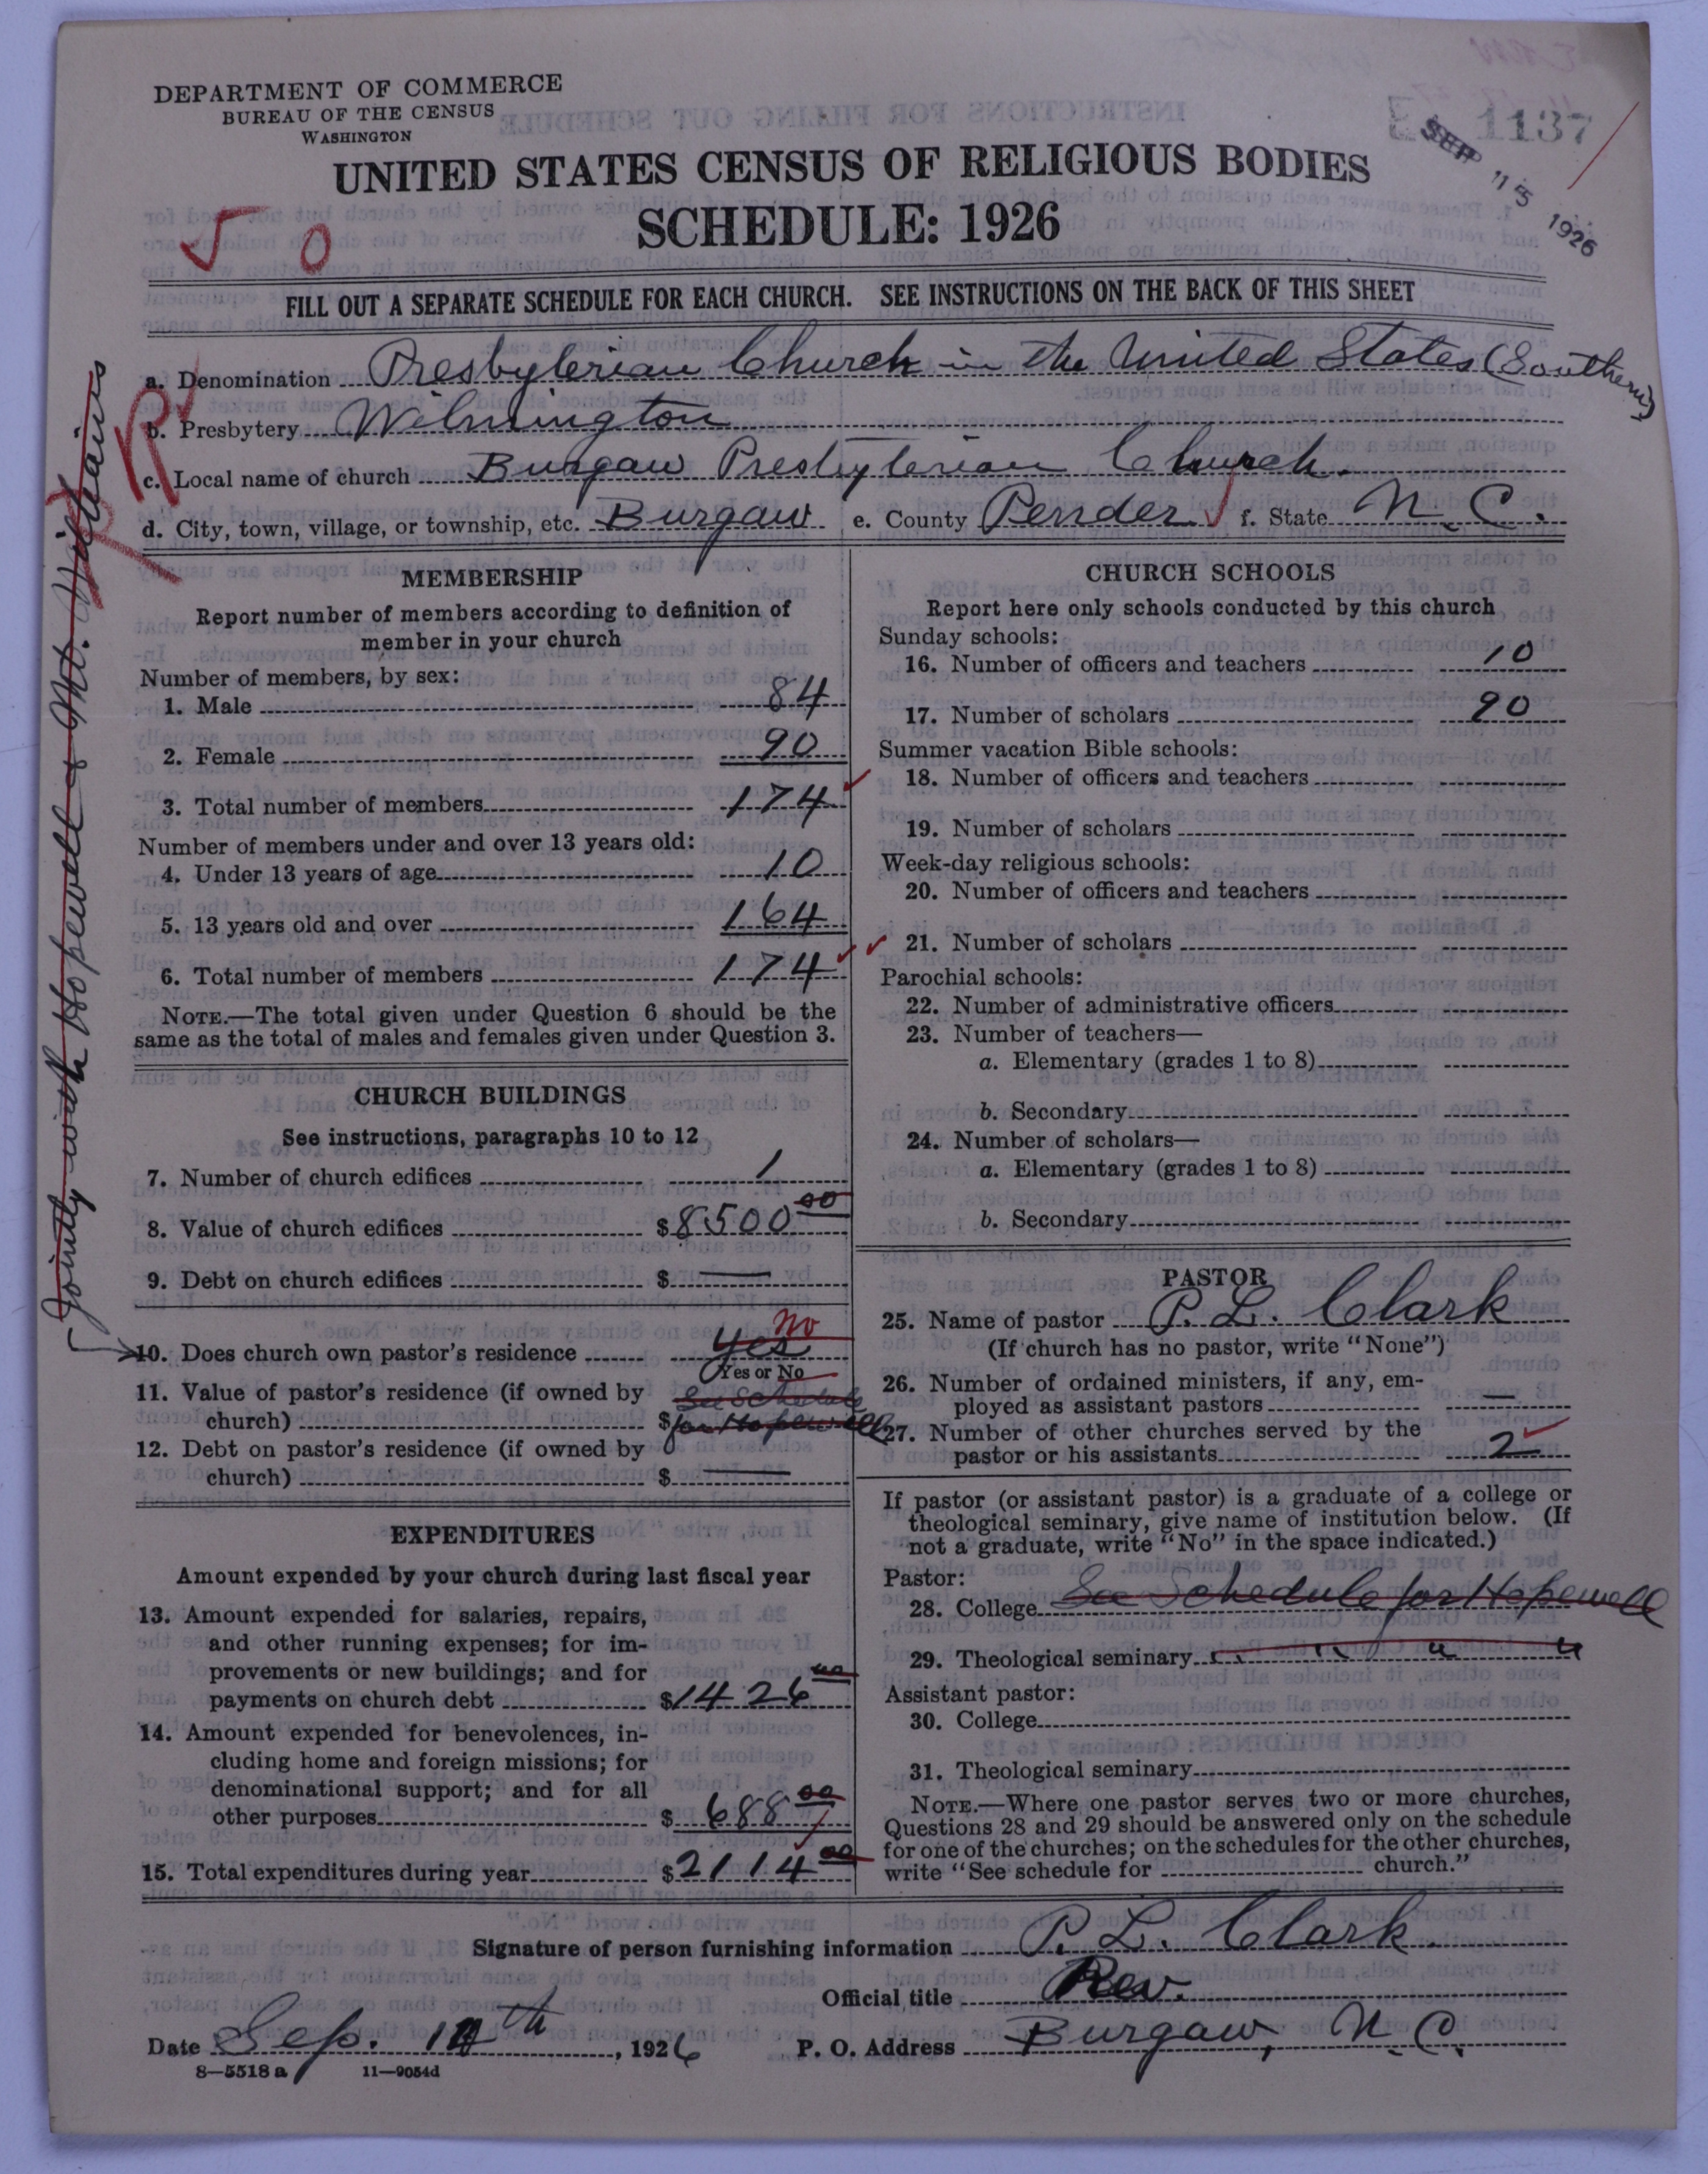 DEPARTMENT OF COMMERCE
BUREAU OF THE CENSUS
WASHINGTON
1137
SEP 15 1926
UNITED STATES CENSUS OF RELIGIOUS BODIES
SCHEDULE: 1926
FILL OUT A SEPARATE SCHEDULE FOR EACH CHURCH. SEE INSTRUCTIONS ON THE BACK OF THIS SHEET
a. Denomination Presbyterian Church in the United States (Southern)
b. Presbytery Wilmington
c. Local name of church Burgaw Presbyterian Church.
d. City, town, village, or township, etc. Burgaw e. County Pender f. State N. C.
Jointly with Hopewell & Mt. Williams
MEMBERSHIP
Report number of members according to definition of
member in your church
Number of members, by sex:
1. Male 84
2. Female 90
3. Total number of members 174
Number of members under and over 13 years old:
4. Under 13 years of age 10
5. 13 years old and over 164
6. Total number of members 174
NOTE.—The total given under Question 6 should be the
same as the total of males and females given under Question 3.
CHURCH BUILDINGS
See instructions, paragraphs 10 to 12
7. Number of church edifices 1
8. Value of church edifices $8500 00
9. Debt on church edifices $ —
10. Does church own pastor's residence Yes No
Yes or No
11. Value of pastor's residence (if owned by See Schedule
church) $ for Hopewell
12. Debt on pastor's residence (if owned by
church) $ —
EXPENDITURES
Amount expended by your church during last fiscal year
13. Amount expended for salaries, repairs,
and other running expenses; for im-
provements or new buildings; and for
payments on church debt $1426 00
14. Amount expended for benevolences, in-
cluding home and foreign missions; for
denominational support; and for all
other purposes $ 688 00
15. Total expenditures during year $2114 00
CHURCH SCHOOLS
Report here only schools conducted by this church
Sunday schools:
16. Number of officers and teachers 10
17. Number of scholars 90
Summer vacation Bible schools:
18. Number of officers and teachers
19. Number of scholars
Week-day religious schools:
20. Number of officers and teachers
21. Number of scholars
Parochial schools:
22. Number of administrative officers
23. Number of teachers—
a. Elementary (grades 1 to 8)
b. Secondary
24. Number of scholars—
a. Elementary (grades 1 to 8)
b. Secondary
PASTOR
25. Name of pastor P. L. Clark
(If church has no pastor, write "None")
26. Number of ordained ministers, if any, em-
ployed as assistant pastors —
27. Number of other churches served by the
pastor or his assistants 2
If pastor (or assistant pastor) is a graduate of a college or
theological seminary, give name of institution below. (If
not a graduate, write "No" in the space indicated.)
Pastor:
28. College See Schedule for Hopewell
29. Theological seminary " " " "
Assistant pastor:
30. College
31. Theological seminary
NOTE.—Where one pastor serves two or more churches,
Questions 28 and 29 should be answered only on the schedule
for one of the churches; on the schedules for the other churches,
write "See schedule for ---------- church."
Signature of person furnishing information P. L. Clark.
Official title Rev.
Date Sep. th, 1926 P. O. Address Burgaw, N. C.
8—5518 a 11—9054d